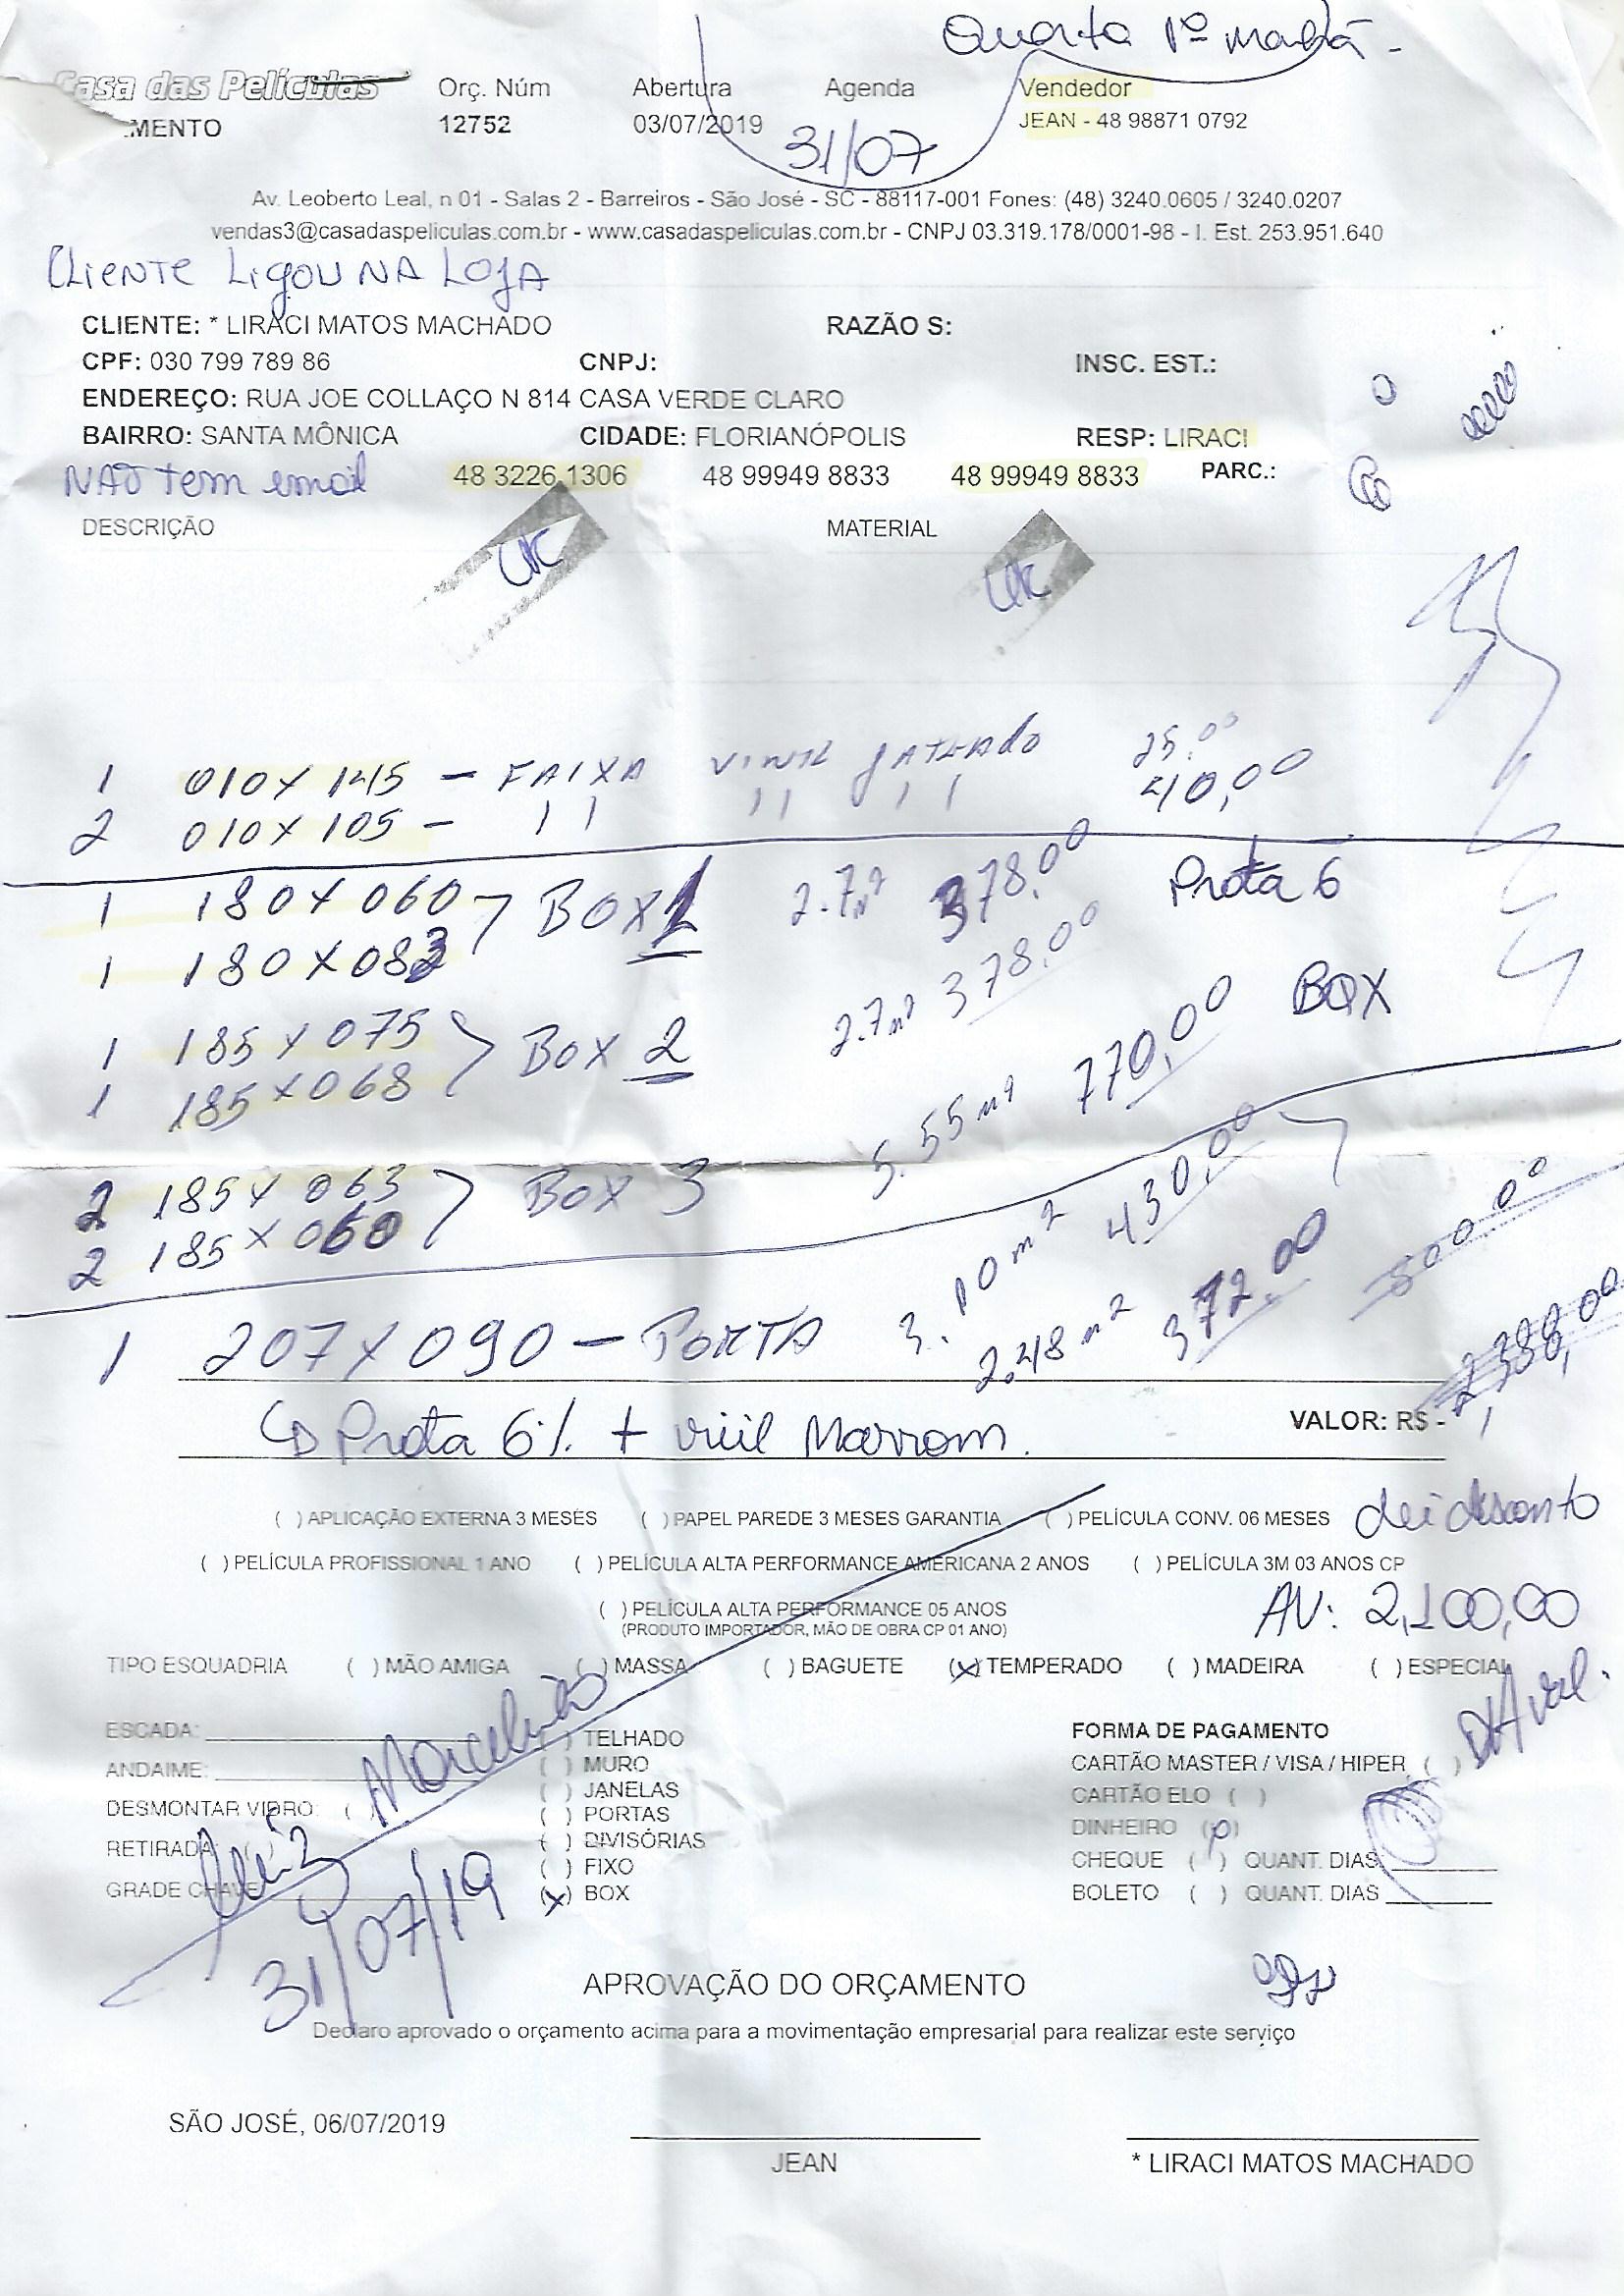 Quarta 1º manhã -
Casa das Películas Orç. Núm Abertura Agenda Vendedor
MENTO 12752 03/07/2019 31/07 JEAN - 48 98871 0792
Av. Leoberto Leal, n 01 - Salas 2 - Barreiros - São José - SC - 88117-001 Fones: (48) 3240.0605 / 3240.0207
vendas3@casadaspeliculas.com.br - www.casadaspeliculas.com.br - CNPJ 03.319.178/0001-98 - I. Est. 253.951.640
CLIENTE LIGOU NA LOJA
CLIENTE: * LIRACI MATOS MACHADO RAZÃO S:
CPF: 030 799 789 86 CNPJ: INSC. EST.:
ENDEREÇO: RUA JOE COLLAÇO N 814 CASA VERDE CLARO
BAIRRO: SANTA MÔNICA CIDADE: FLORIANÓPOLIS RESP: LIRACI
NÃO tem email 48 3226.1306 48 99949 8833 48 99949 8833 PARC.:
DESCRIÇÃO MATERIAL
1 010 X 145 - FAIXA VINIL JATEADO 25,00
2 010 X 105 - 11 11 11 40,00
1 180 X 060 } BOX 1 2.7m² 378,00 Prata 6
1 180 X 083
1 185 X 075 } BOX 2 2.7m² 378,00 BOX
1 185 X 068
2 185 X 063 } BOX 3 5.55m² 770,00
2 185 X 060
3.10m² 430,00
1 207 X 090 - PORTA 2.48m² 372,00
Prata 6% + vinil Marrom. VALOR: R$ -
( ) APLICAÇÃO EXTERNA 3 MESES ( ) PAPEL PAREDE 3 MESES GARANTIA ( ) PELÍCULA CONV. 06 MESES dei desconto
( ) PELÍCULA PROFISSIONAL 1 ANO ( ) PELÍCULA ALTA PERFORMANCE AMERICANA 2 ANOS ( ) PELÍCULA 3M 03 ANOS CP
( ) PELÍCULA ALTA PERFORMANCE 05 ANOS
(PRODUTO IMPORTADOR, MÃO DE OBRA CP 01 ANO)
AV: 2,100,00
TIPO ESQUADRIA ( ) MÃO AMIGA ( ) MASSA ( ) BAGUETE (x) TEMPERADO ( ) MADEIRA ( ) ESPECIAL
ESCADA: ( ) TELHADO FORMA DE PAGAMENTO
ANDAIME: ( ) MURO CARTÃO MASTER / VISA / HIPER ( )
( ) JANELAS CARTÃO ELO ( )
DESMONTAR VIDRO: ( ) ( ) PORTAS DINHEIRO ( )
RETIRADA: ( ) ( ) DIVISÓRIAS CHEQUE ( ) QUANT. DIAS
( ) FIXO
GRADE CHAVE (x) BOX BOLETO ( ) QUANT. DIAS
31/07/19
APROVAÇÃO DO ORÇAMENTO
Declaro aprovado o orçamento acima para a movimentação empresarial para realizar este serviço
SÃO JOSÉ, 06/07/2019
JEAN * LIRACI MATOS MACHADO